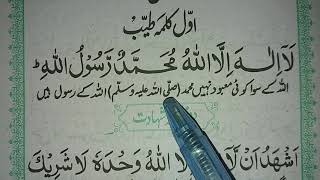 اوّل کلمہ طیّب
لَآ اِلٰہَ اِلَّا اللّٰہُ مُحَمَّدٌ رَّسُوْلُ اللّٰہِ ؕ
اللہ کے سوا کوئی معبود نہیں محمد (صلّی اللہ علیہ وسلم) اللہ کے رسول ہیں
شہادت
اَشْهَدُ اَنْ لَّآ اللّٰہُ وَحْدَہٗ لَا شَرِیْكَ